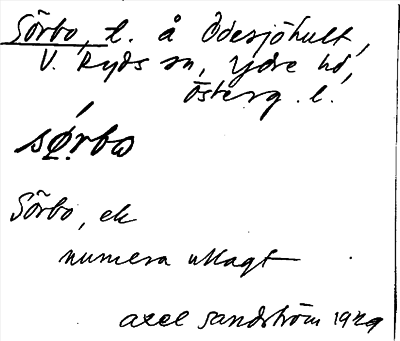 Sörbo, t. å Ödesjöhult,
V. Ryds sn, Ydre hd,
Österg. l.
sǿ̣rbω
Sörbo, ek
numera utlagt
Axel Sandström 1929